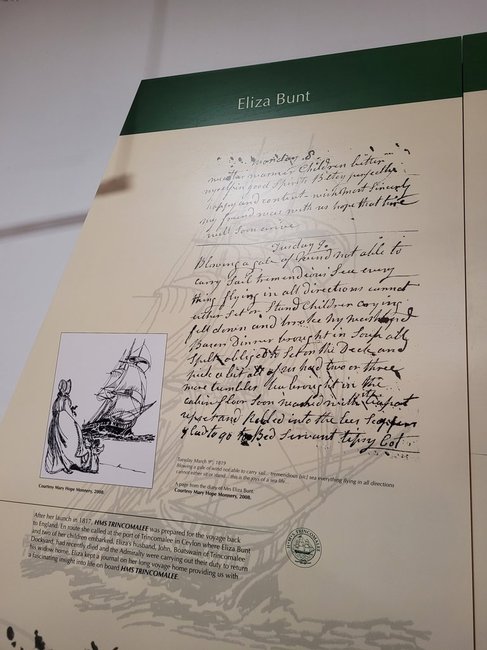 Eliza Bunt
Monday 8
weather warmer Children better
myself in good Spirits Betsy perfectly
happy and content wish most Sincerly
my friend was with us hope that time
will soon arrive
Tuesday 9.
Blowing a gale of Wind not able to
carry Sail tremendious Sea every
thing flying in all directions cannot
either Set or Stand Children crying
fell down and broke my
Bason Dinner brought in Soup all
Spilt obliged to Set on the Deck and
pick a bit all of us had two or three
more tumbles Tea brought in the
cabin floor soon washed with it
upset and rolled into the Lee
glad to go to Bed Servant tipsy Cot
Tuesday March 9th, 1819
Blowing a gale of wind not able to carry sail... tremendious (sic) sea everything flying in all directions
cannot either sit or stand... this is the joys of a sea life
A page from the diary of Mrs Eliza Bunt.
Courtesy Mary Hope Monnery, 2008.
Courtesy Mary Hope Monnery, 2008.
After her launch in 1817, HMS TRINCOMALEE was prepared for the voyage back
to England. En route she called at the port of Trincomalee in Ceylon where Eliza Bunt
and two of her children embarked. Eliza's husband, John, Boatswain of Trincomalee
Dockyard, had recently died and the Admiralty were carrying out their duty to return
his widow home. Eliza kept a journal on her long voyage home providing us with
a fascinating insight into life on board HMS TRINCOMALEE.
HMS TRINCOMALEE